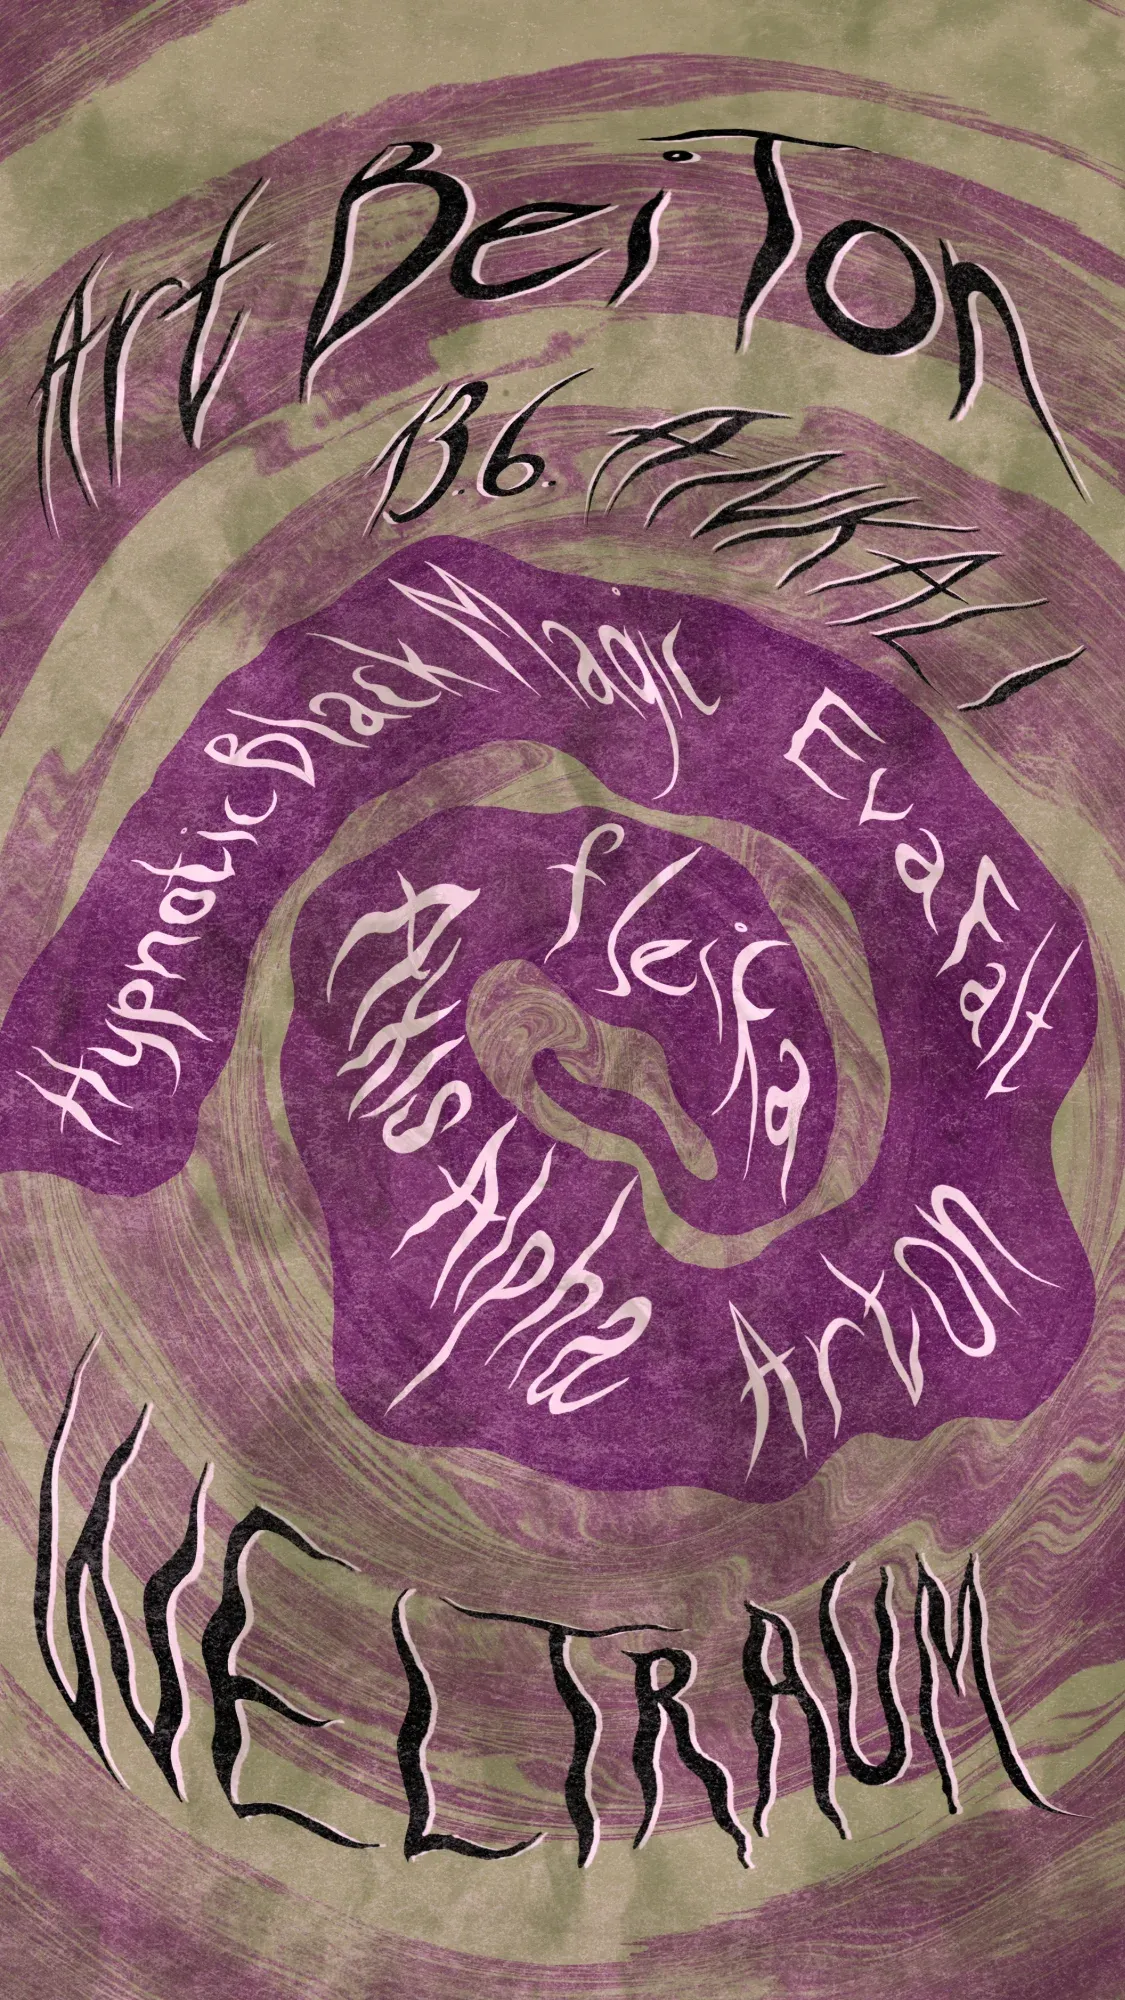 Art Bei Ton
13.6. ANKALI
Hypnotic Black Magic
Eva Falt
Arton
Alpha
WELTRAUM